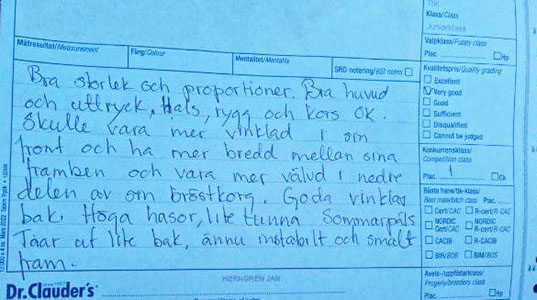 Klass/Class
Juniorklass
Valpklass/Puppy class
Plac. Hp
Mätresultat/Measurement Färg/Colour Mentalitet/Mentality SRD notering/BSI notes
Kvalitetspris/Quality grading
Excellent
Very good
Good
Sufficient
Disqualified
Cannot be judged
Konkurrensklass/
Competition class
Plac. 1 Ck
Bästa hane/tik-klass/
Best male/bitch class Plac.
Cert/CAC R-cert/R-CAC
NORDIC Cert/CAC NORDIC R-cert/R-CAC
CACIB R-CACIB
BIR/BOB BIM/BOS
Avels-/uppfödarklass/
Progeny/breeders class
Bra storlek och proportioner. Bra huvud
och uttryck, Hals, rygg och kors OK.
Skulle vara mer vinklad i
front och ha mer bredd mellan sina
framben och vara mer välvd i nedre
delen av bröstkorg. Goda vinklar
bak. Höga hasor, lite tunna Sommarpäls
Tåar ut lite bak, ännu instabilt och smalt
fram.
HERNGREN JAN
Dr.Clauder's